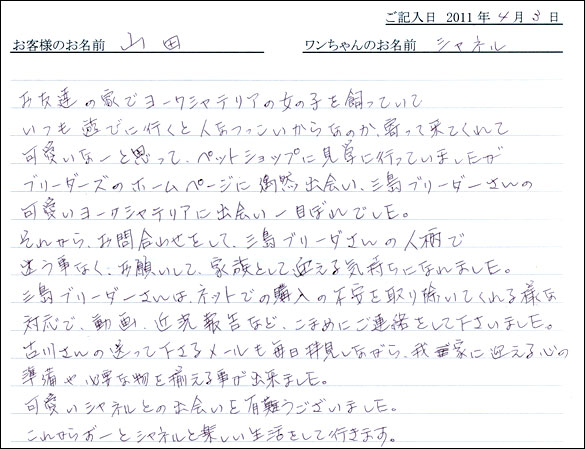 ご記入日 2011年 4月 3日
お客様のお名前 山田 ワンちゃんのお名前 シャネル
お友達の家でヨークシャテリアの女の子を飼っていて
いつも遊びに行くと人なつっこいからなのか、寄って来てくれて
可愛いなーと思って、ペットショップに見学に行っていましたが
ブリーダーズのホームページに偶然出会い、三島ブリーダーさんの
可愛いヨークシャテリアに出会い一目ぼれでした。
それから、お問合わせをして、三島ブリーダさんの人柄で
迷う事なく、お願いして、家族として迎える気持ちになれました。
三島ブリーダーさんは、ネットでの購入の不安を取り除いてくれる様な
対応で、動画、近況報告など、こまめにご連絡をして下さいました。
古川さんの送って下さるメールも毎日拝見しながら、我家に迎える心の
準備や必要な物を揃える事が出来ました。
可愛いシャネルとの出会いを有難うございました。
これからずーとシャネルと楽しい生活をして行きます。